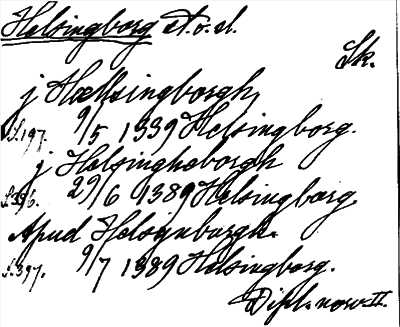 Helsingborg st. o. sl.
Sk.
j Hælsingborgh
s. 197. 9/5 1339 Helsingborg.
j Helsingheborgh
s. 396. 29/6 1389 Helsingborg.
Apud Helsynburgh.
s. 397. 9/7 1389 Helsingborg.
Dipl. norv. II.